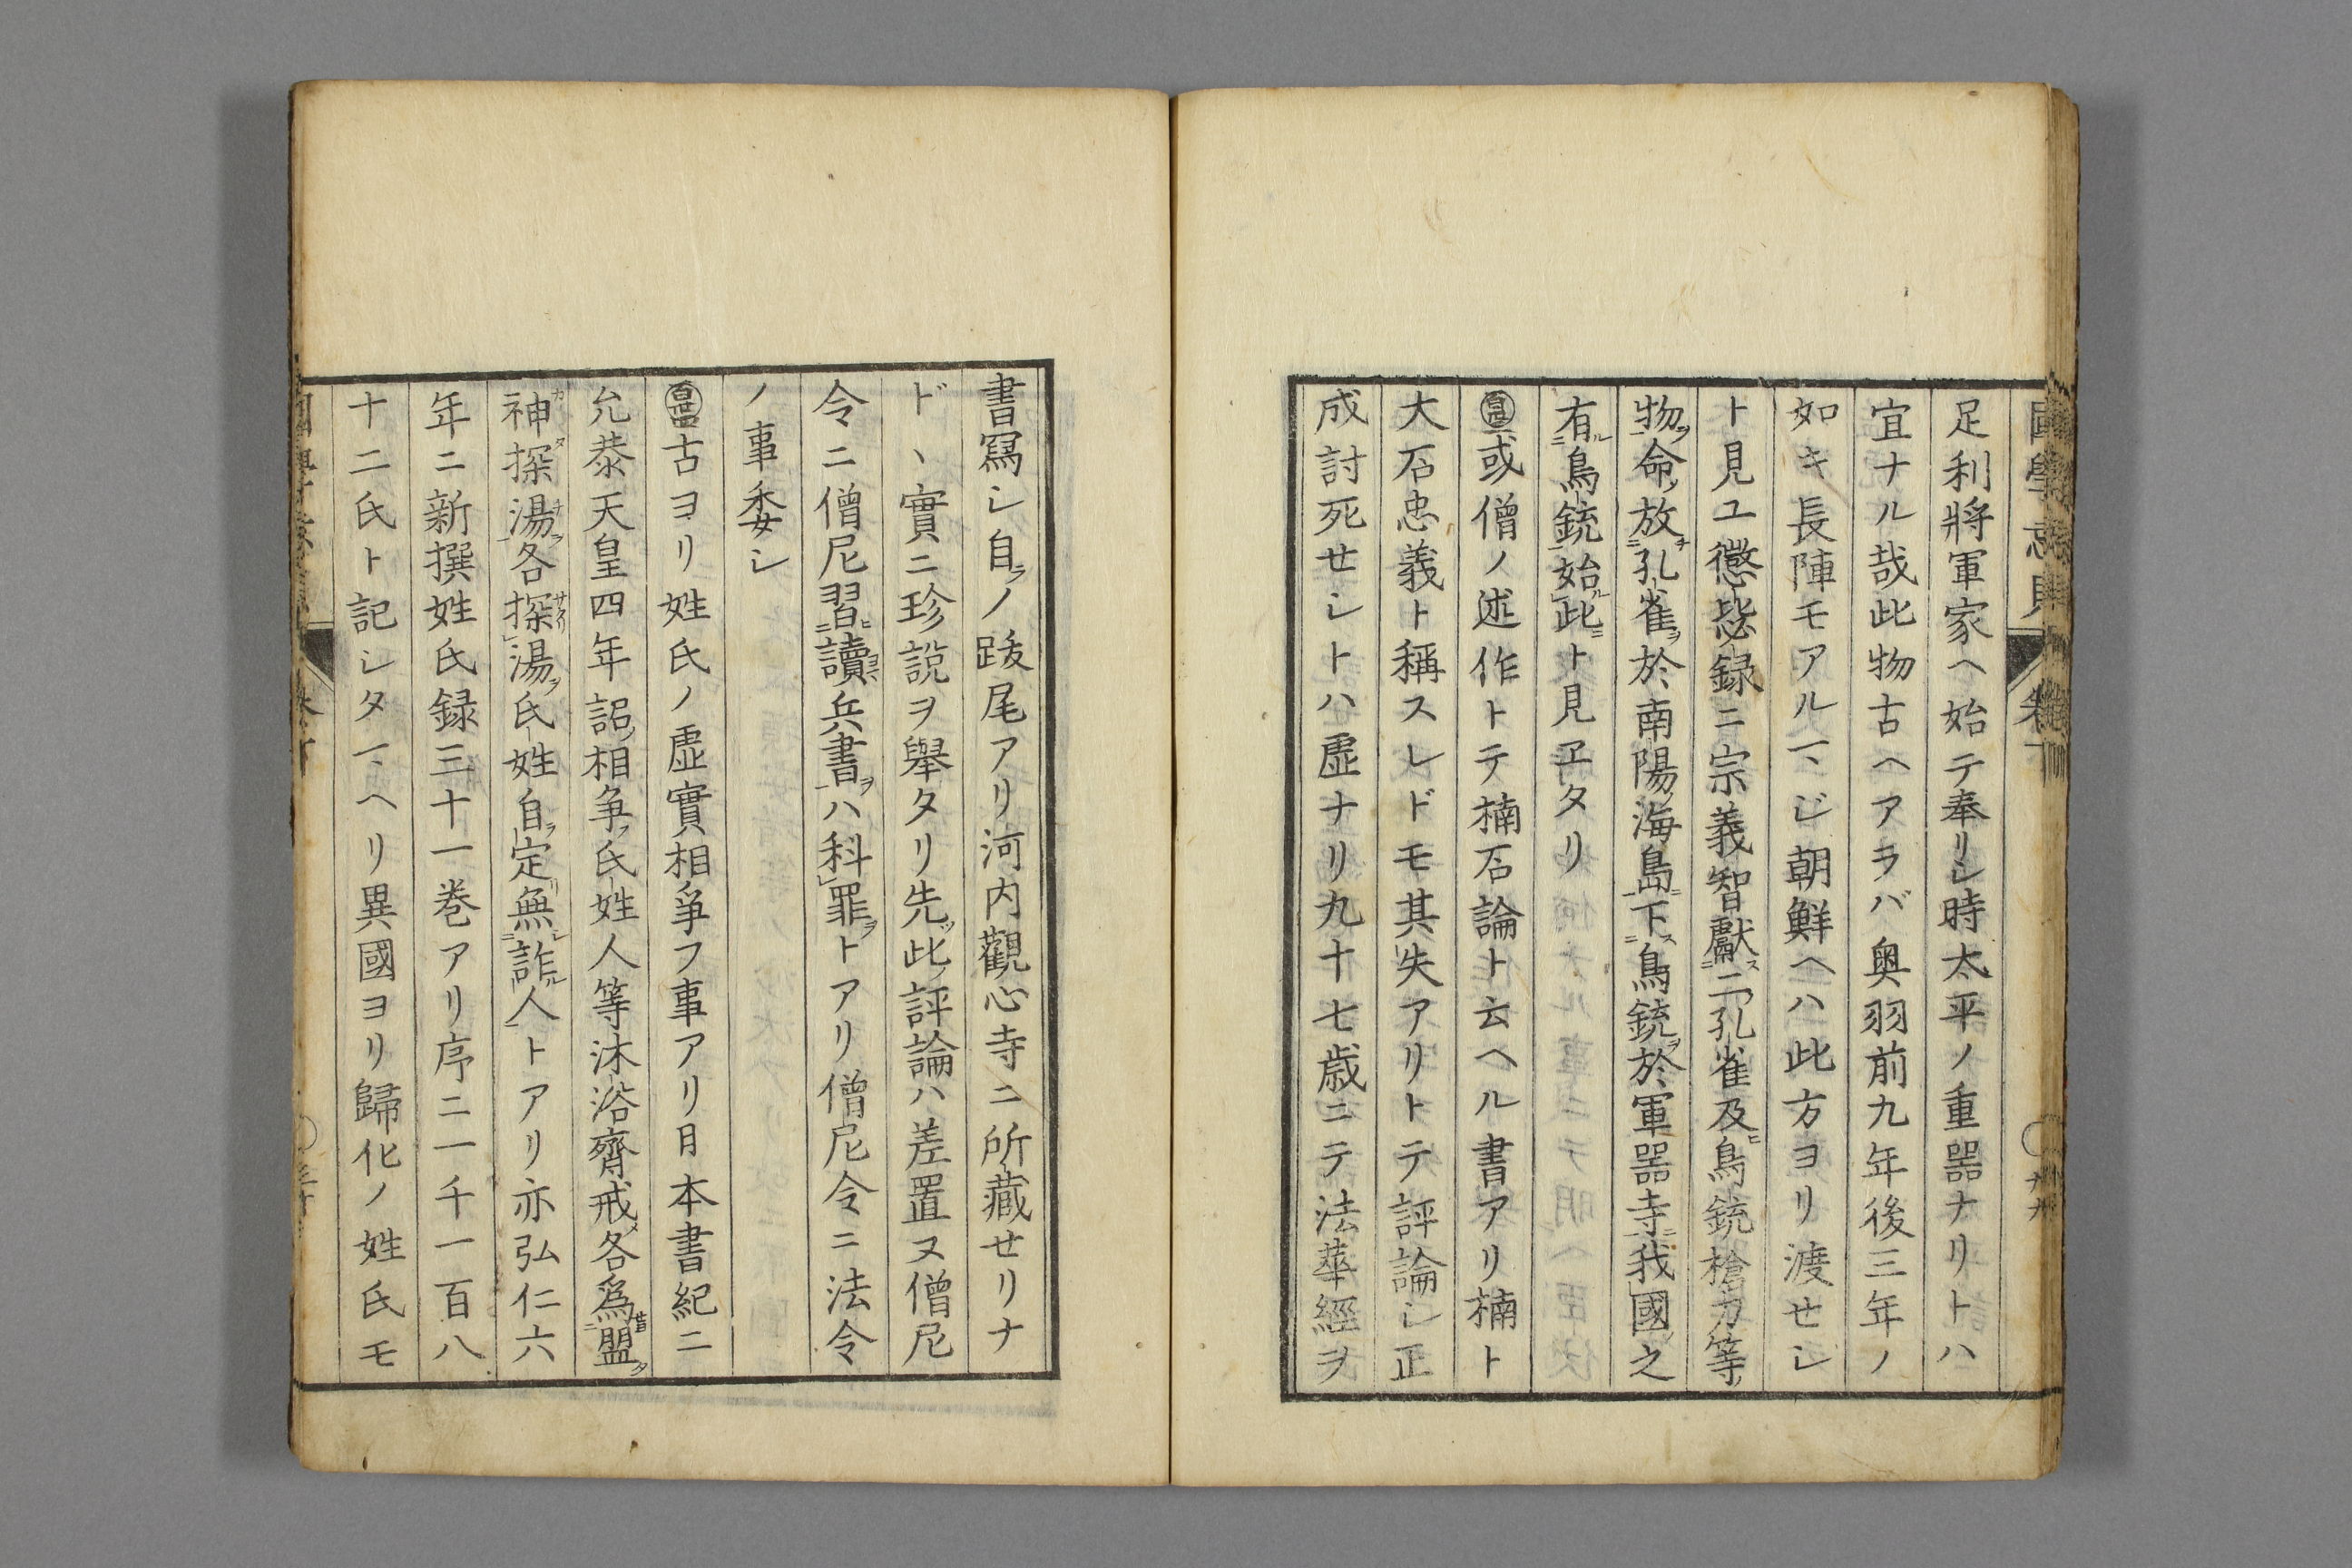 足利將軍家ヘ始テ奉リシ時太平ノ重器ナリトハ
宜ナル哉此物古ヘアラバ奥羽前九年後三年ノ
如キ長陣モアルヿヽジ朝鮮ヘハ此方ヨリ渡セシ
ト見ユ懲毖録ニ宗義智獻二孔雀及鳥銃槍刀等
物命放孔雀於南陽海島下鳥銃於軍器寺我國之
有鳥銃始此ト見ヱタリ
或僧ノ述作トテ楠石論ト云ヘル書アリ楠ト
大石忠義ト稱スレドモ其失アリトテ評論シ正
成討死セシトハ虚ナリ九十七歳ニテ法華經ヲ
書寫シ自ノ跋尾アリ河内觀心寺ニ所藏セリナ
ドヽ實ニ珍説ヲ擧タリ先此評論ハ差置ヌ僧尼
令ニ僧尼習讀兵書ハ科罪トアリ僧尼令ニ法令
ノ事委シ
古ヨリ姓氏ノ虚實相爭フ事アリ日本書紀ニ
允恭天皇四年詔相争氏姓人等沐浴齊戒各爲盟
神探湯各探湯氏姓自定無詐人トアリ亦弘仁六
年ニ新撰姓氏録三十一巻アリ序ニ一千一百八
十二氏ト記シタヿヘリ異國ヨリ歸化ノ姓氏モ